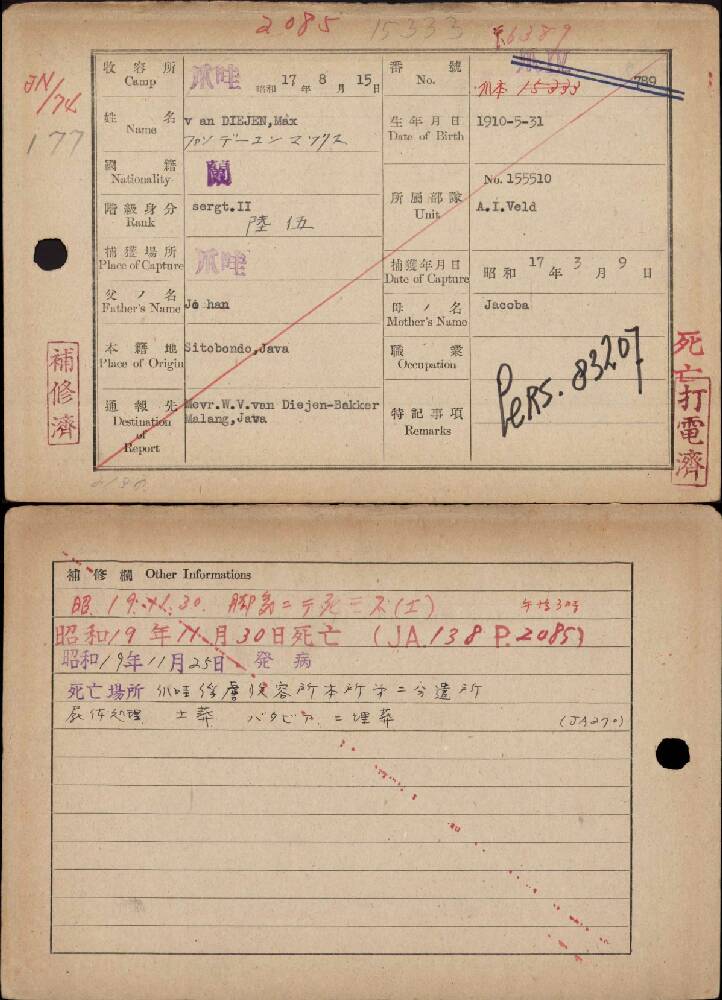 2085 15333
JN/74
177
收容所
Camp
爪哇
昭和 17 年 8 月 15 日
番號
No.
爪本 15333
789
姓名
Name
v an DIEJEN, Max
ファン デーエン マックス
生年月日
Date of Birth
1910-5-31
國籍
Nationality
蘭
所屬部隊
Unit
No. 155510
A.I.Veld
階級身分
Rank
sergt.II
陸伍
捕獲場所
Place of Capture
爪哇
捕獲年月日
Date of Capture
昭和 17 年 3 月 9 日
父ノ名
Father's Name
Jo han
母ノ名
Mother's Name
Jacoba
本籍地
Place of Origin
Sitobondo, Java
職業
Occupation
通報先
Destination
of
Report
Mevr.W.V.van Diejen-Bakker
Malang, Java
特記事項
Remarks
Pers. 83207
補修濟
死亡打電濟
補修欄 Other Informations
昭 19.11.30. 脚気ニテ死亡
昭和19年11月30日死亡 (JA.138 P.2085)
昭和19年11月25日 発病
死亡場所 爪哇俘虜収容所本所第二分遣所
屍体処理 土葬 バタビアニ埋葬 (JA270)